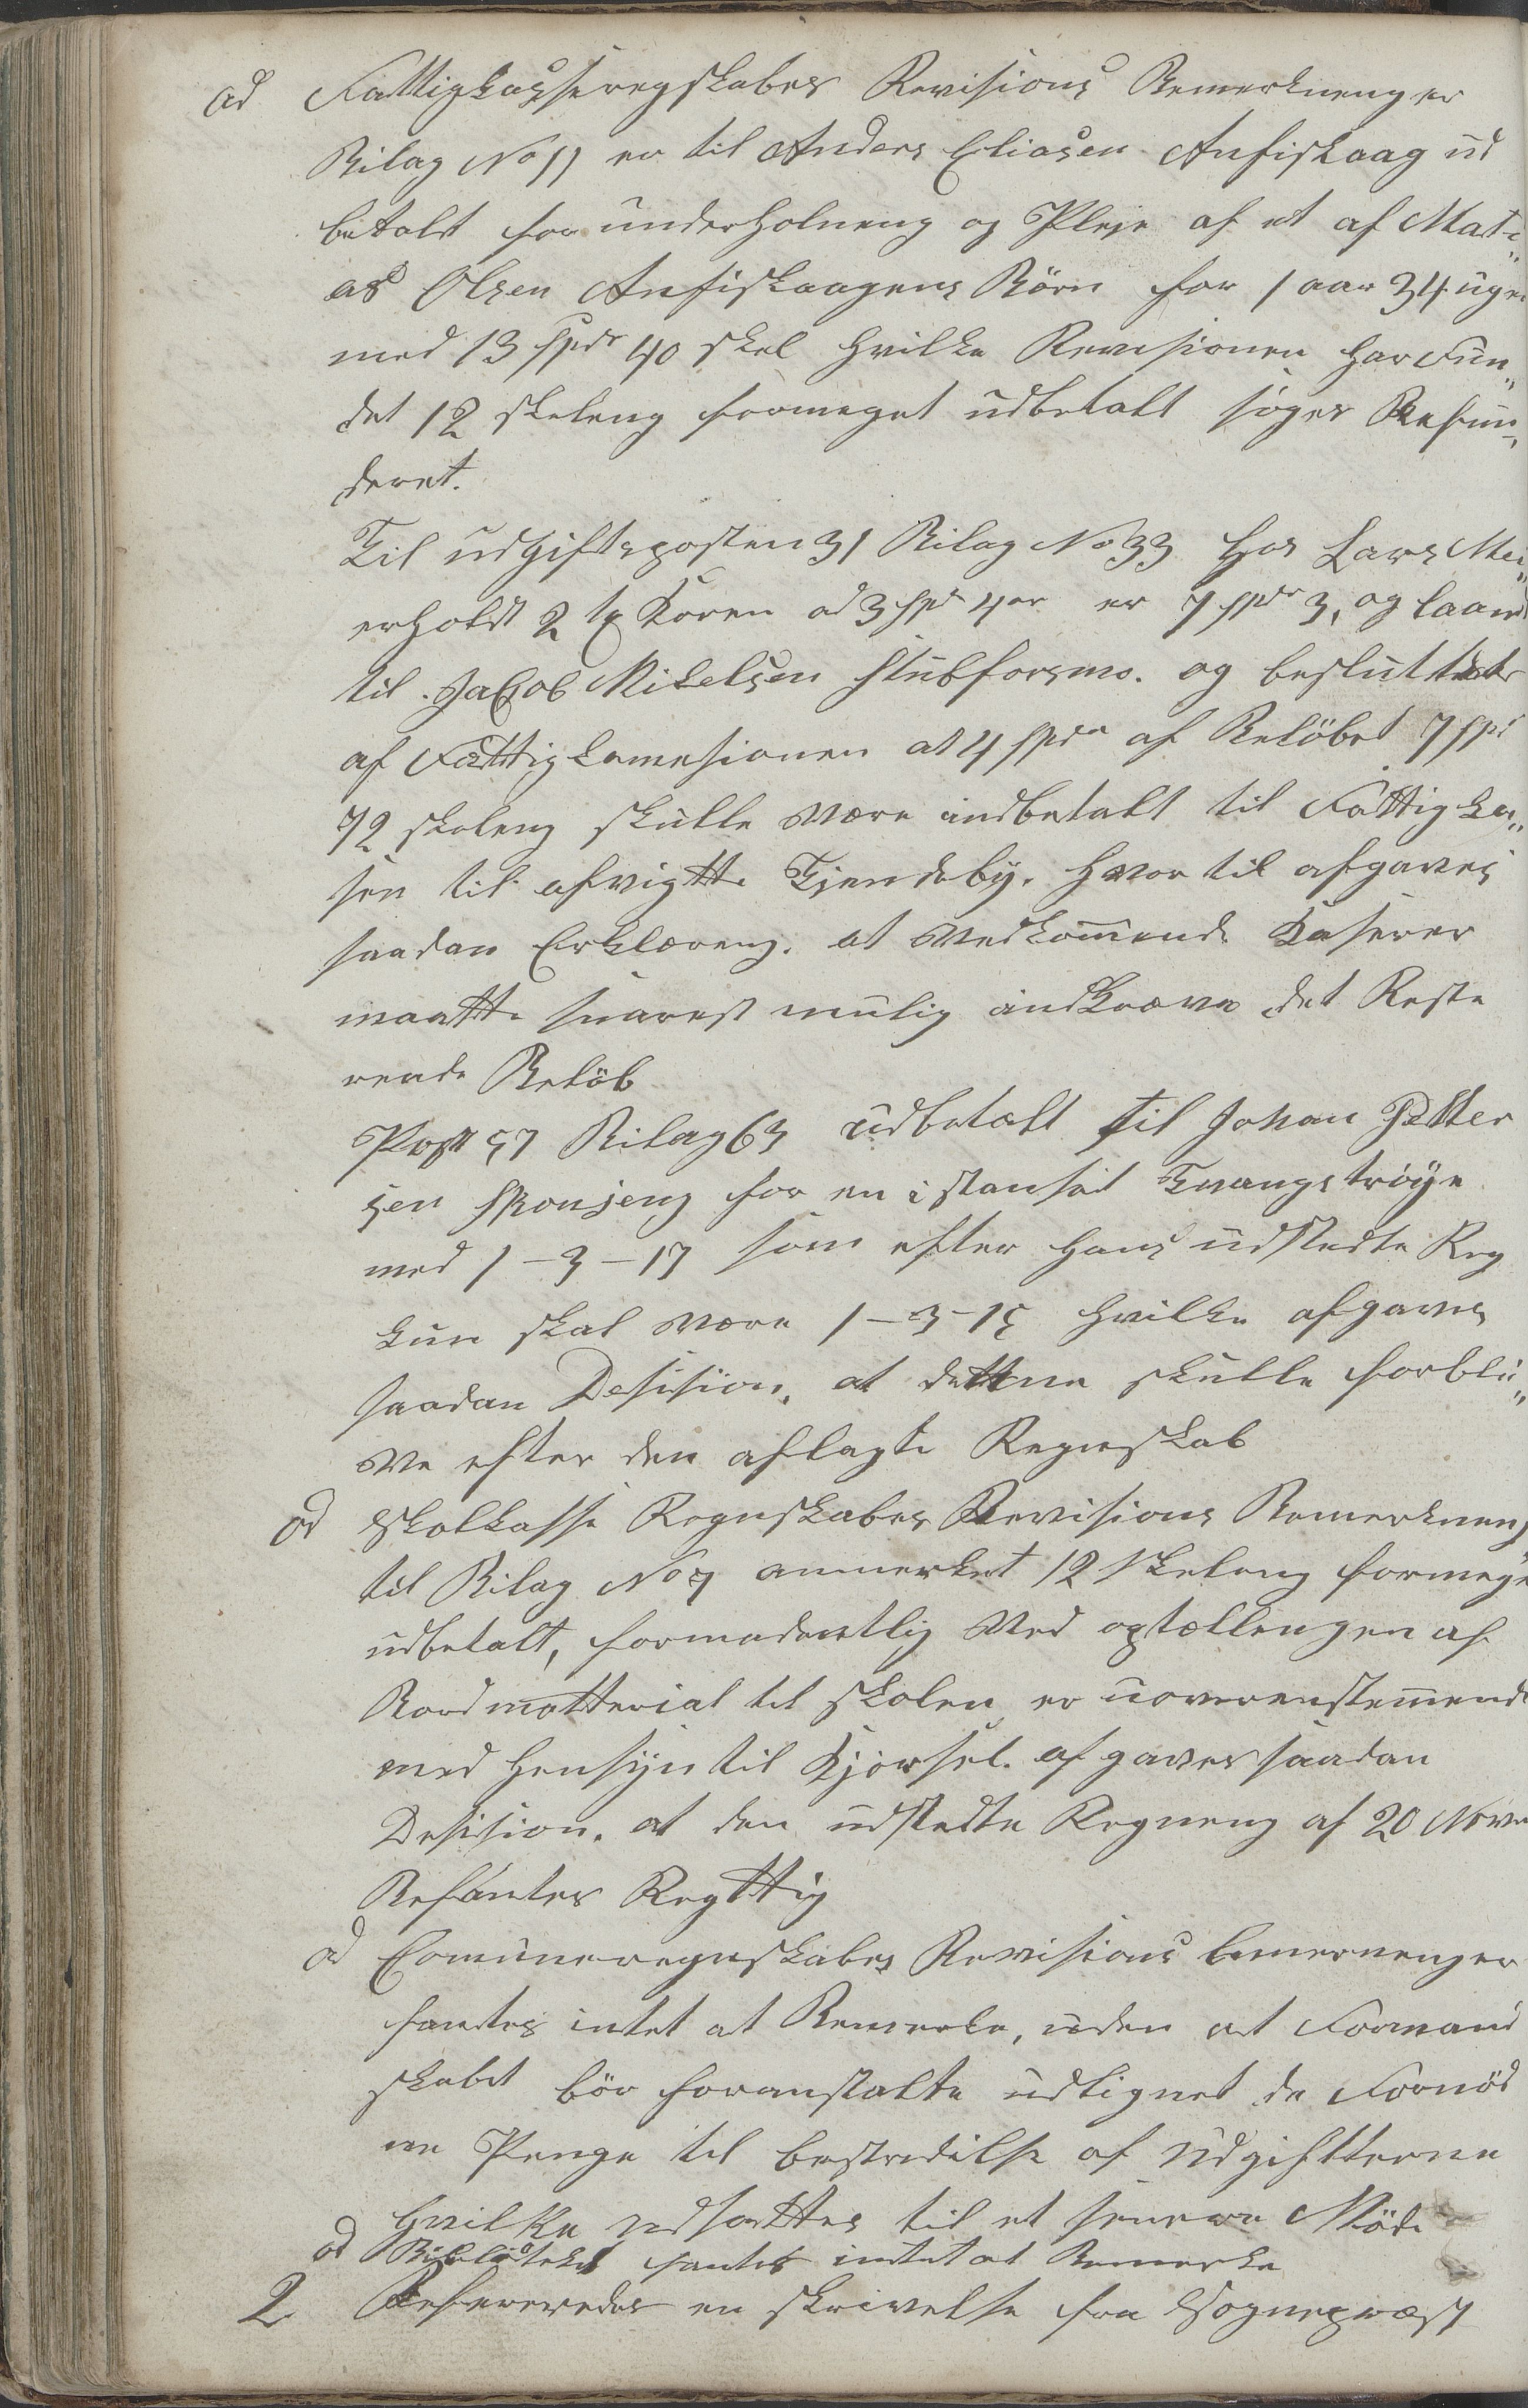 ad Fattigkasseregskabes Revisions Bemerkneng er
Bilag No 11 er til Anders Eliasen Anfiskaag ud
betalt for underholneng og Pleje af et af Mati„
as Olsen Anfiskaagens Börn for 1 aar 34 uger
med 13 spdr 40 skel hvilke Revisionen har fun„
det 12 skeleng formeget udbetalt söges Refun„
deret.
Til udgiftsposten 31 Bilag No 33 hos Lars Mei„
erholst 2 tr Koren ad 3 spd 4 or er 7 spdr 3, og laant
til Jacob Mikelsen Stubforsmo. og besluttedes
af Fattigkomesionen at 4 spdr af Belöbet 7 spd
72 skeleng skulle være indbetalt til Fattigka„
sen til afvigtte Tjendeby. hvor til afgaves
saadan Erklæreng. at Vedkommende Kaserer
maatte snarest mulig indkræve det Reste
rende Belöb
Post 57 Bilag 63 udbetalt til Johan Petter
sen Skonseng for en istansat Tvangströye
med 1 - 3 - 17 som efter hans udstedte Reg
kun skal være 1 - 3 - 15 hvilke afgaves
saadan Desision, at dettne skulle forbli„
ve efter den aflagte Regnskab
ad Skolkasse Regnskabes Revisions Bemerkneng
til Bilag No 7 anmerket 12 skeleng formeget
udbetalt, formodentlig Ved optællengen af
Bordmatterial til skolen er uoverenstemende
med Hensyn til Kjörsel. afgaves saadan
Desision. at den udstedte Regneng af 20 Nove
Befantes Regttig
ad Comuneregnskabes Revisions bemernenger
fandtes intet at Bemerke, uden at Formand
skabet bör foranstalte udlignet de Fornöd
ne Penge til bestredilse af Udgiftterne
hvilke udsattes til et senere Möde
ad Biblioteket fantes intet at Bemerke
2 Refereredes en skrivelse fra Sognepræst